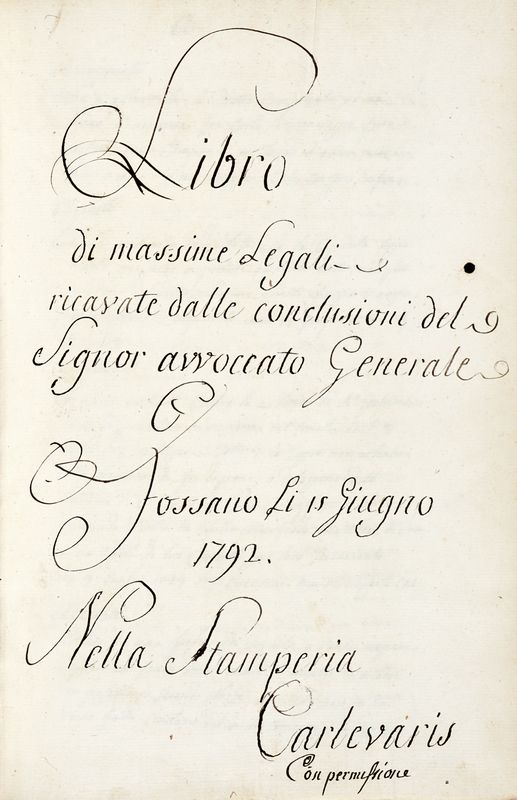 Libro
di massime Legali
ricavate dalle conclusioni del
Signor avvoccato Generale
Fossano Li 15 Giugno
1792.
Nella Stamperia
Carlevaris
Con permissione